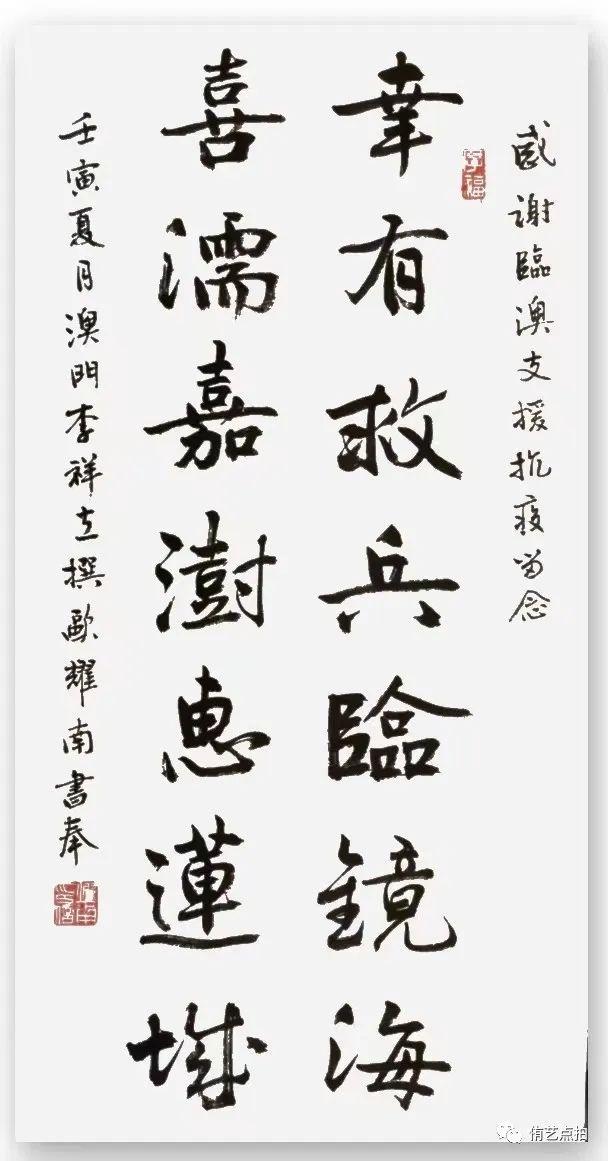 感謝臨澳支援抗疫留念
幸有救兵臨鏡海
喜濡嘉澍惠蓮城
壬寅夏月澳門李祥立撰歐耀南書奉
侑艺点拍